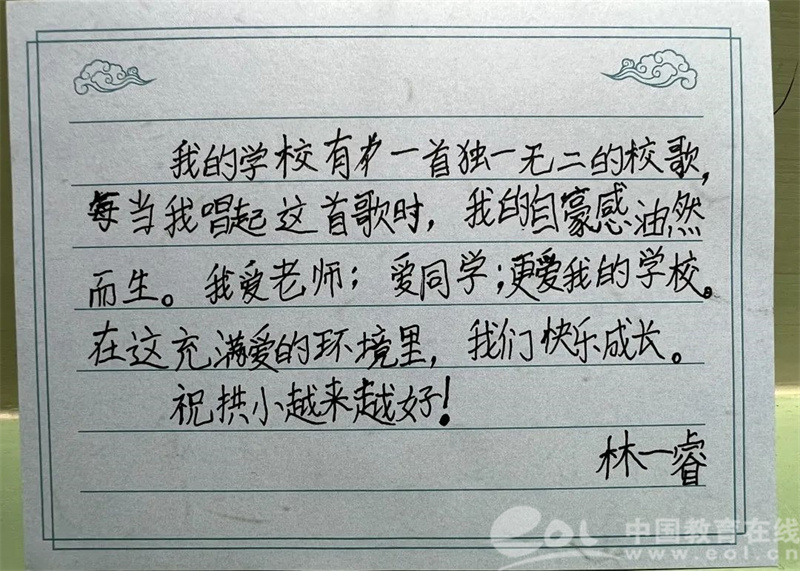 我的学校有一首独一无二的校歌，
每当我唱起这首歌时，我的自豪感油然
而生。我爱老师；爱同学；更爱我的学校。
在这充满爱的环境里，我们快乐成长。
祝拱小越来越好！
林一睿
eol 中国教育在线
www.eol.cn